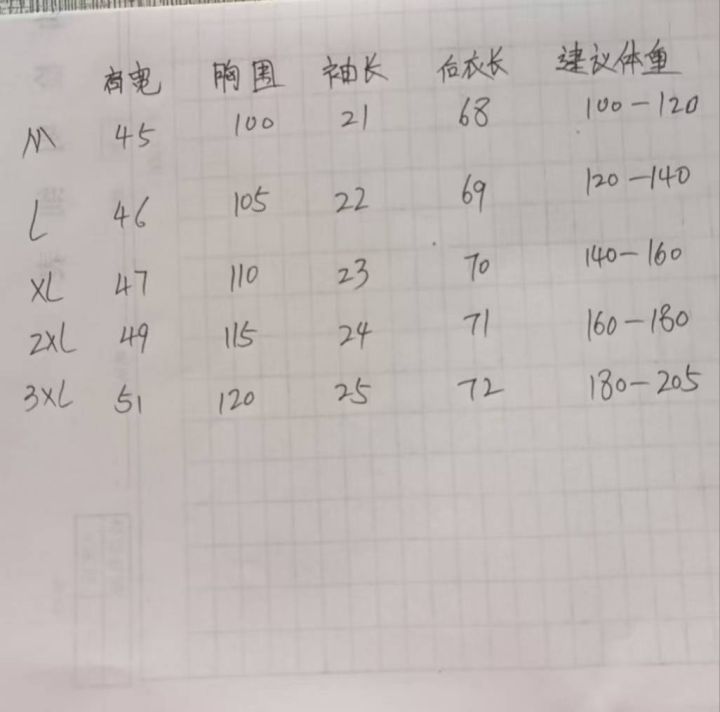 肩宽 胸围 袖长 后衣长 建议体重
M 45 100 21 68 100-120
L 46 105 22 69 120-140
XL 47 110 23 70 140-160
2XL 49 115 24 71 160-180
3XL 51 120 25 72 180-205